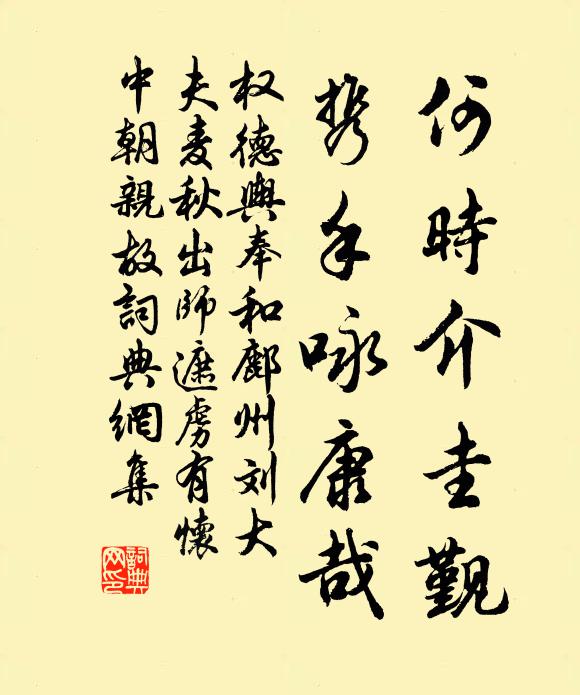 何時介圭觐
携手咏康哉
权德興奉和鄜州刘大
夫麦秋出師遮虏有懷
中朝親故詞典網集
詞典
网印